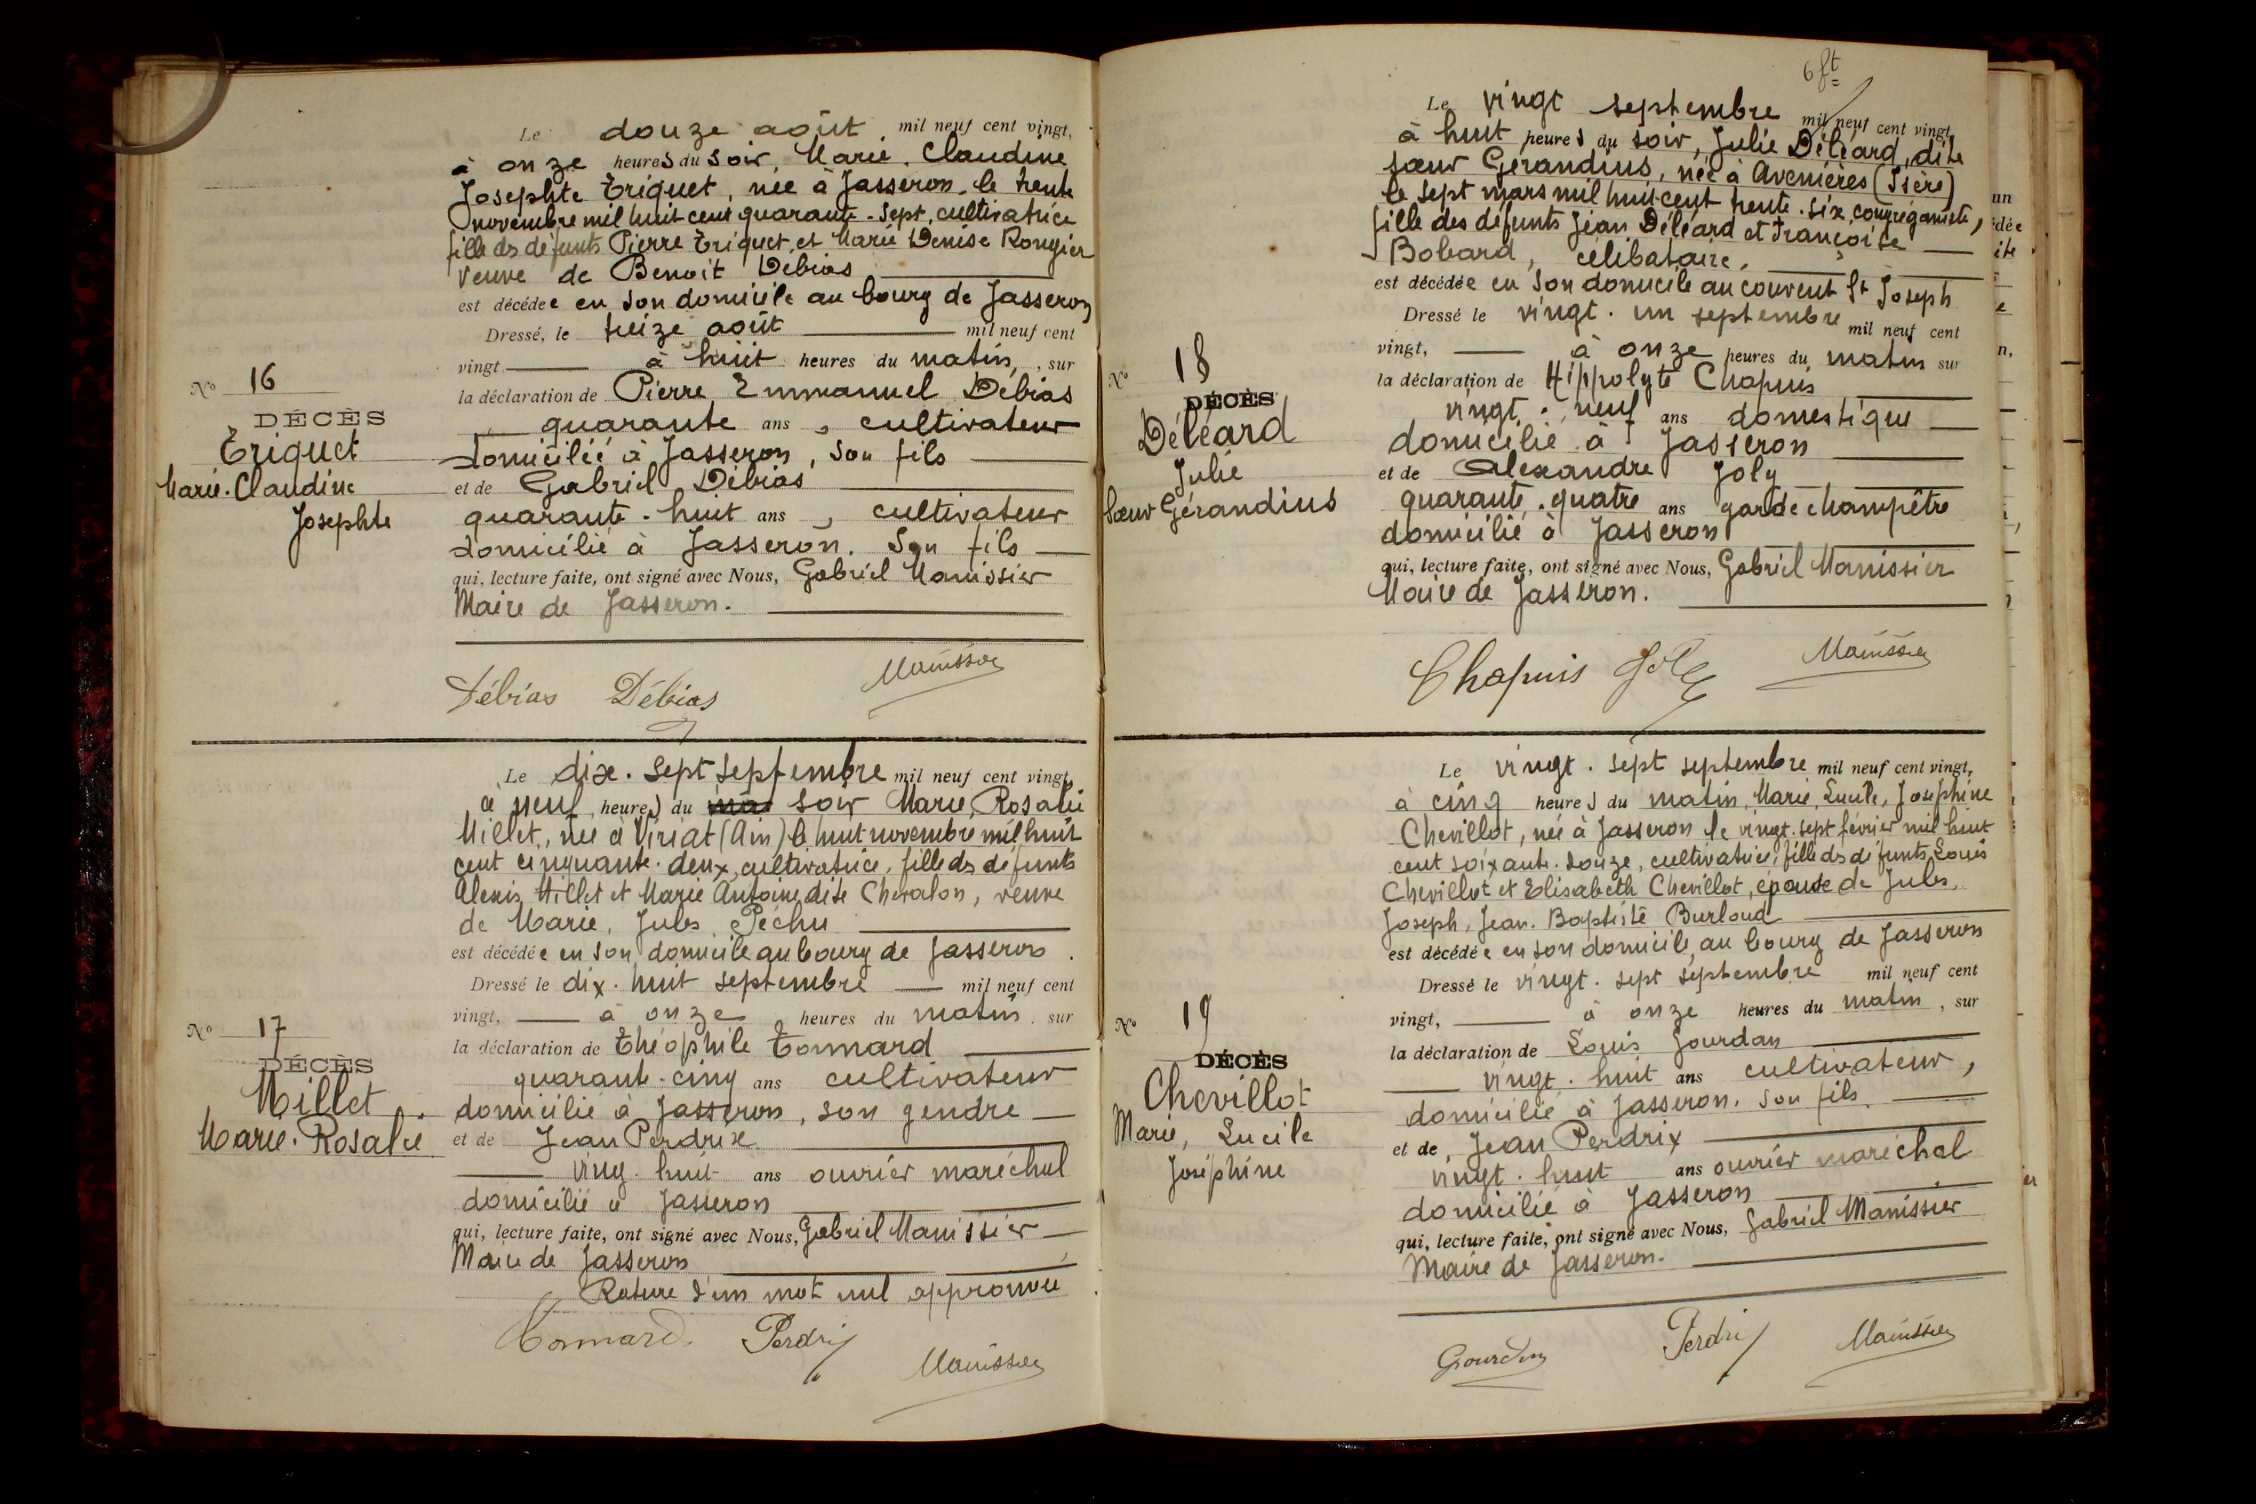 Le douze août mil neuf cent vingt,
à onze heures du soir, Marie, Claudine
Josephte Triquet, née à Jasseron, le trente
novembre mil huit cent quarante-sept, cultivatrice
fille des défunts Pierre Triquet, et Marie Denise Rougier
veuve de Benoit Débias
est décédée en son domicile au bourg de Jasseron
Dressé, le treize août mil neuf cent
vingt à huit heures du matin, sur
la déclaration de Pierre Emmanuel Débias
quarante ans, cultivateur
domicilié à Jasseron, son fils
et de Gabriel Débias
quarante-huit ans, cultivateur
domicilié à Jasseron. Son fils
qui, lecture faite, ont signé avec Nous, Gabriel Manissier
Maire de Jasseron.
No 16
DÉCÈS
Triquet
Marie-Claudine
Josephte
Débias Débias Manissier
Le dix-sept septembre mil neuf cent vingt,
à neuf heures du soir Marie, Rosalie
Millet, née à Viriat (Ain) le huit novembre mil huit
cent cinquante-deux, cultivatrice, fille des défunts
Alexis Millet et Marie Antoine dite Chevalon, veuve
de Marie, Jules Péchu
est décédée en son domicile au bourg de Jasseron.
Dressé le dix-huit septembre mil neuf cent
vingt, à onze heures du matin, sur
la déclaration de Théophile Tonnard
quarante-cinq ans cultivateur
domicilié à Jasseron, son gendre
et de Jean Perdrix
ving-huit ans ouvrier maréchal
domicilié à Jasseron
qui, lecture faite, ont signé avec Nous, Gabriel Manissier
Maire de Jasseron
Rature d'un mot nul approuvée
No 17
DÉCÈS
Millet
Marie-Rosalie
Tonnard Perdrix Manissier
6 ft
Le vingt septembre mil neuf cent vingt,
à huit heures du soir, Julie Déléard, dite
sœur Gérandius, née à Avenières (Isère)
le sept mars mil huit cent trente-six, congréganiste,
fille des défunts Jean Déléard et Françoise
Bobard, célibataire,
est décédée en son domicile au couvent St Joseph
Dressé le vingt-un septembre mil neuf cent
vingt, à onze heures du matin sur
la déclaration de Hippolyte Chapuis
vingt-neuf ans domestique
domicilié à Jasseron
et de Alexandre Joly
quarante-quatre ans garde champêtre
domicilié à Jasseron
qui, lecture faite, ont signé avec Nous, Gabriel Manissier
Maire de Jasseron.
No 18
DÉCÈS
Déléard
Julie
Sœur Gérandius
Chapuis Joly Manissier
Le vingt-sept septembre mil neuf cent vingt,
à cinq heures du matin, Marie, Lucile, Joséphine
Chevillot, née à Jasseron le vingt-sept février mil huit
cent soixante-douze, cultivatrice, fille des défunts Louis
Chevillot et Elisabeth Chevillot, épouse de Jules,
Joseph, Jean-Baptiste Burloud
est décédée en son domicile, au bourg de Jasseron
Dressé le vingt-sept septembre mil neuf cent
vingt, à onze heures du matin, sur
la déclaration de Louis Jourdan
vingt-huit ans cultivateur,
domicilié à Jasseron. Son fils
et de, Jean Perdrix
vingt-huit ans ouvrier maréchal
domicilié à Jasseron
qui, lecture faite, ont signé avec Nous, Gabriel Manissier
Maire de Jasseron.
No 19
DÉCÈS
Chevillot
Marie, Lucile
Joséphine
Perdrix Manissier